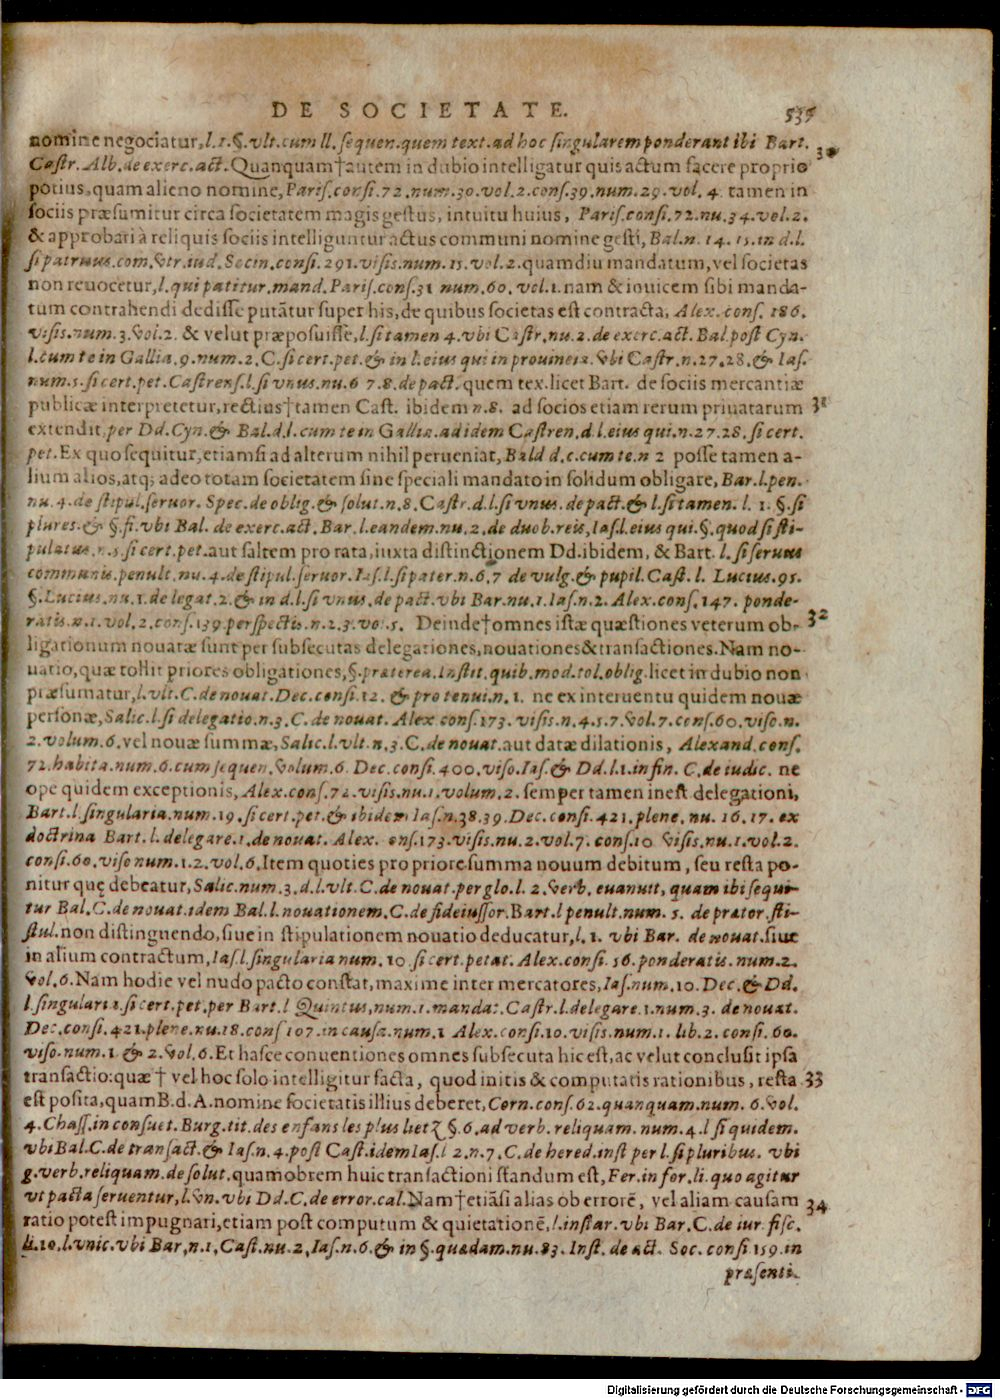 DE SOCIETATE. 535
nomine negociatur, l. 1. §. vlt. cum ll. sequen. quem text. ad hoc singularem ponderant ibi Bart. 30
Castr. Alb. de exerc. act. Quanquam† autem in dubio intelligatur quis actum facere proprio
potius, quam alieno nomine, Paris. consi. 72. num. 30. vol. 2. cons. 39. num. 29. vol. 4. tamen in
sociis præsumitur circa societatem magis gestus, intuitu huius, Paris. consi. 72. nu. 34. vel. 2.
& approbari à reliquis sociis intelliguntur actus communi nomine gesti, Bal. n. 14. 15. in d. l.
si patruus. com. vtr. iud. Socin. consi. 291. visis. num. 15. vol. 2. quamdiu mandatum, vel societas
non reuocetur, l. qui patitur. mand. Paris. cons. 31 num. 60. vol. 1. nam & inuicem sibi manda-
tum contrahendi dedisse putātur super his, de quibus societas est contracta, Alex. cons. 186.
visis. num. 3. vol. 2. & velut præposuisse, l. si tamen 4. vbi Castr. nu. 2. de exerc. act. Bal. post Cyn.
l. cum te in Gallia, 9. num. 2. C. si cert. pet. & in l. eius qui in prouincia. vbi Castr. n. 27. 28. & Ias.
num. 5. si cert. pet. Castrens. l. si vnus. nu. 6 7. 8. de pact. quem tex. licet Bart. de sociis mercantiæ
publicæ interpretetur, rectius† tamen Cast. ibidem n. 8. ad socios etiam rerum priuatarum 31
extendit, per Dd. Cyn. & Bal. d. l. cum te in Gallia. ad idem Castren. d. l. eius qui. n. 27. 28. si cert.
pet. Ex quo sequitur, etiamsi ad alterum nihil perueniat, Bald d. c. cum te. n 2 posse tamen a-
lium alios, atq; adeo totam societatem sine speciali mandato in solidum obligare, Bar. l. pen.
nu. 4. de stipul. seruor. Spec. de oblig. & solut. n. 8. Castr. d. l. si vnus. de pact. & l. si tamen. l. 1. §. si
plures. & §. fi. vbi Bal. de exerc. act. Bar. l. eandem. nu. 2. de duob. reis, Ias. l. eius qui. §. quod si sti-
pulatus. n. 5. si cert. pet. aut saltem pro rata, iuxta distinctionem Dd. ibidem, & Bart. l. si seruus
communis. penult. nu. 4. de stipul. seruor. Ias. l. si pater. n. 6. 7 de vulg. & pupil. Cast. l. Lucius. 95.
§. Lucius. nu. 1. de legat. 2. & in d. l. si vnus. de pact. vbi Bar. nu. 1. Ias. n. 2. Alex. cons. 147. ponde-
ratis. n. 1. vol. 2. cons. 139. perspectis. n. 2. 3. vo. 5. Deinde† omnes istæ quæstiones veterum ob- 32
ligationum nouatæ sunt per subsecutas delegationes, nouationes & transactiones. Nam no-
uatio, quæ tollit priores obligationes, §. præterea. Instit. quib. mod. tol. oblig. licet in dubio non
præsumatur, l. vlt. C. de nouat. Dec. consi. 12. & pro tenui. n. 1. ne ex interuentu quidem nouæ
personæ, Salic. l. si delegatio. n. 3. C. de nouat. Alex cons. 173. visis. n. 4. 5. 7. vol. 7. cons. 60. viso. n.
2. volum. 6. vel nouæ summæ, Salic. l. vlt. n. 3. C. de nouat. aut datæ dilationis, Alexand. cons.
72. habita. num. 6. cum sequen. volum. 6. Dec. consi. 400. viso. Ias. & Dd. l. 1. in fin. C. de iudic. ne
ope quidem exceptionis, Alex. cons. 72. visis. nu. 1. volum. 2. semper tamen inest delegationi,
Bart. l. singularia. num. 19. si cert. pet. & ibidem Ias. n. 38. 39. Dec. consi. 421. plene. nu. 16. 17. ex
doctrina Bart. l. delegare. 1. de nouat. Alex. ens. 173. visis. nu. 2. vol. 7. cons. 10 visis. nu. 1. vol. 2.
consi. 60. viso num. 1. 2. vol. 6. Item quoties pro priore summa nouum debitum, seu resta po-
nitur quę debeatur, Salic. num. 3. d. l. vlt. C. de nouat. per glo. l. 2. verb. euanuit, quam ibi sequi-
tur Bal. C. de nouat. idem Bal. l. nouationem. C. de fideiussor. Bart. l penult. num. 5. de prætor. sti-
stul. non distinguendo, siue in stipulationem nouatio deducatur, l. 1. vbi Bar. de nouat. siue
in alium contractum, Ias. l. singularia num. 10 si cert. petat. Alex. consi. 56. ponderatis. num. 2.
vol. 6. Nam hodie vel nudo pacto constat, maxime inter mercatores, Ias. num. 10. Dec. & Dd.
l. singularia. si cert. pet. per Bart. l Quintus, num. 1. manda: Castr. l. delegare. 1. num. 3. de nouat.
Dec. consi. 421. plene. nu. 18. cons 107. in causa. num. 1 Alex. consi. 10. visis. num. 1. lib. 2. consi. 60.
viso. num. 1 & 2. vol. 6. Et hasce conuentiones omnes subsecuta hic est, ac velut conclusit ipsa
transactio: quæ † vel hoc solo intelligitur facta, quod initis & computatis rationibus, resta 33
est posita, quam B. d. A. nomine societatis illius deberet, Corn. cons. 62. quanquam. num. 6. vol.
4. Chass. in consuet. Burg. tit. des enfans les plus lietz §. 6. ad verb. reliquam. num. 4. l si quidem.
vbi Bal. C. de transact. & Ias. n. 4. post Cast. idem Ias. l 2. n. 7. C. de hered. inst per l. si pluribus. vbi
g. verb. reliquam. de solut. quamobrem huic transactioni standum est, Fer. in for. li. quo agitur
vt pacta seruentur, l. vn. vbi Dd. C. de error. cal. Nam† etiāsi alias ob errorē, vel aliam causam 34
ratio potest impugnari, etiam post computum & quietationē, l. instar. vbi Bar. C. de iur. fisc.
li. 10. l. vnic. vbi Bar, n. 1, Cast. nu. 2, Ias. n. 6. & in §. quædam. nu. 83. Inst. de act. Soc. consi 159. in
præsenti.
Digitalisierung gefördert durch die Deutsche Forschungsgemeinschaft - DFG